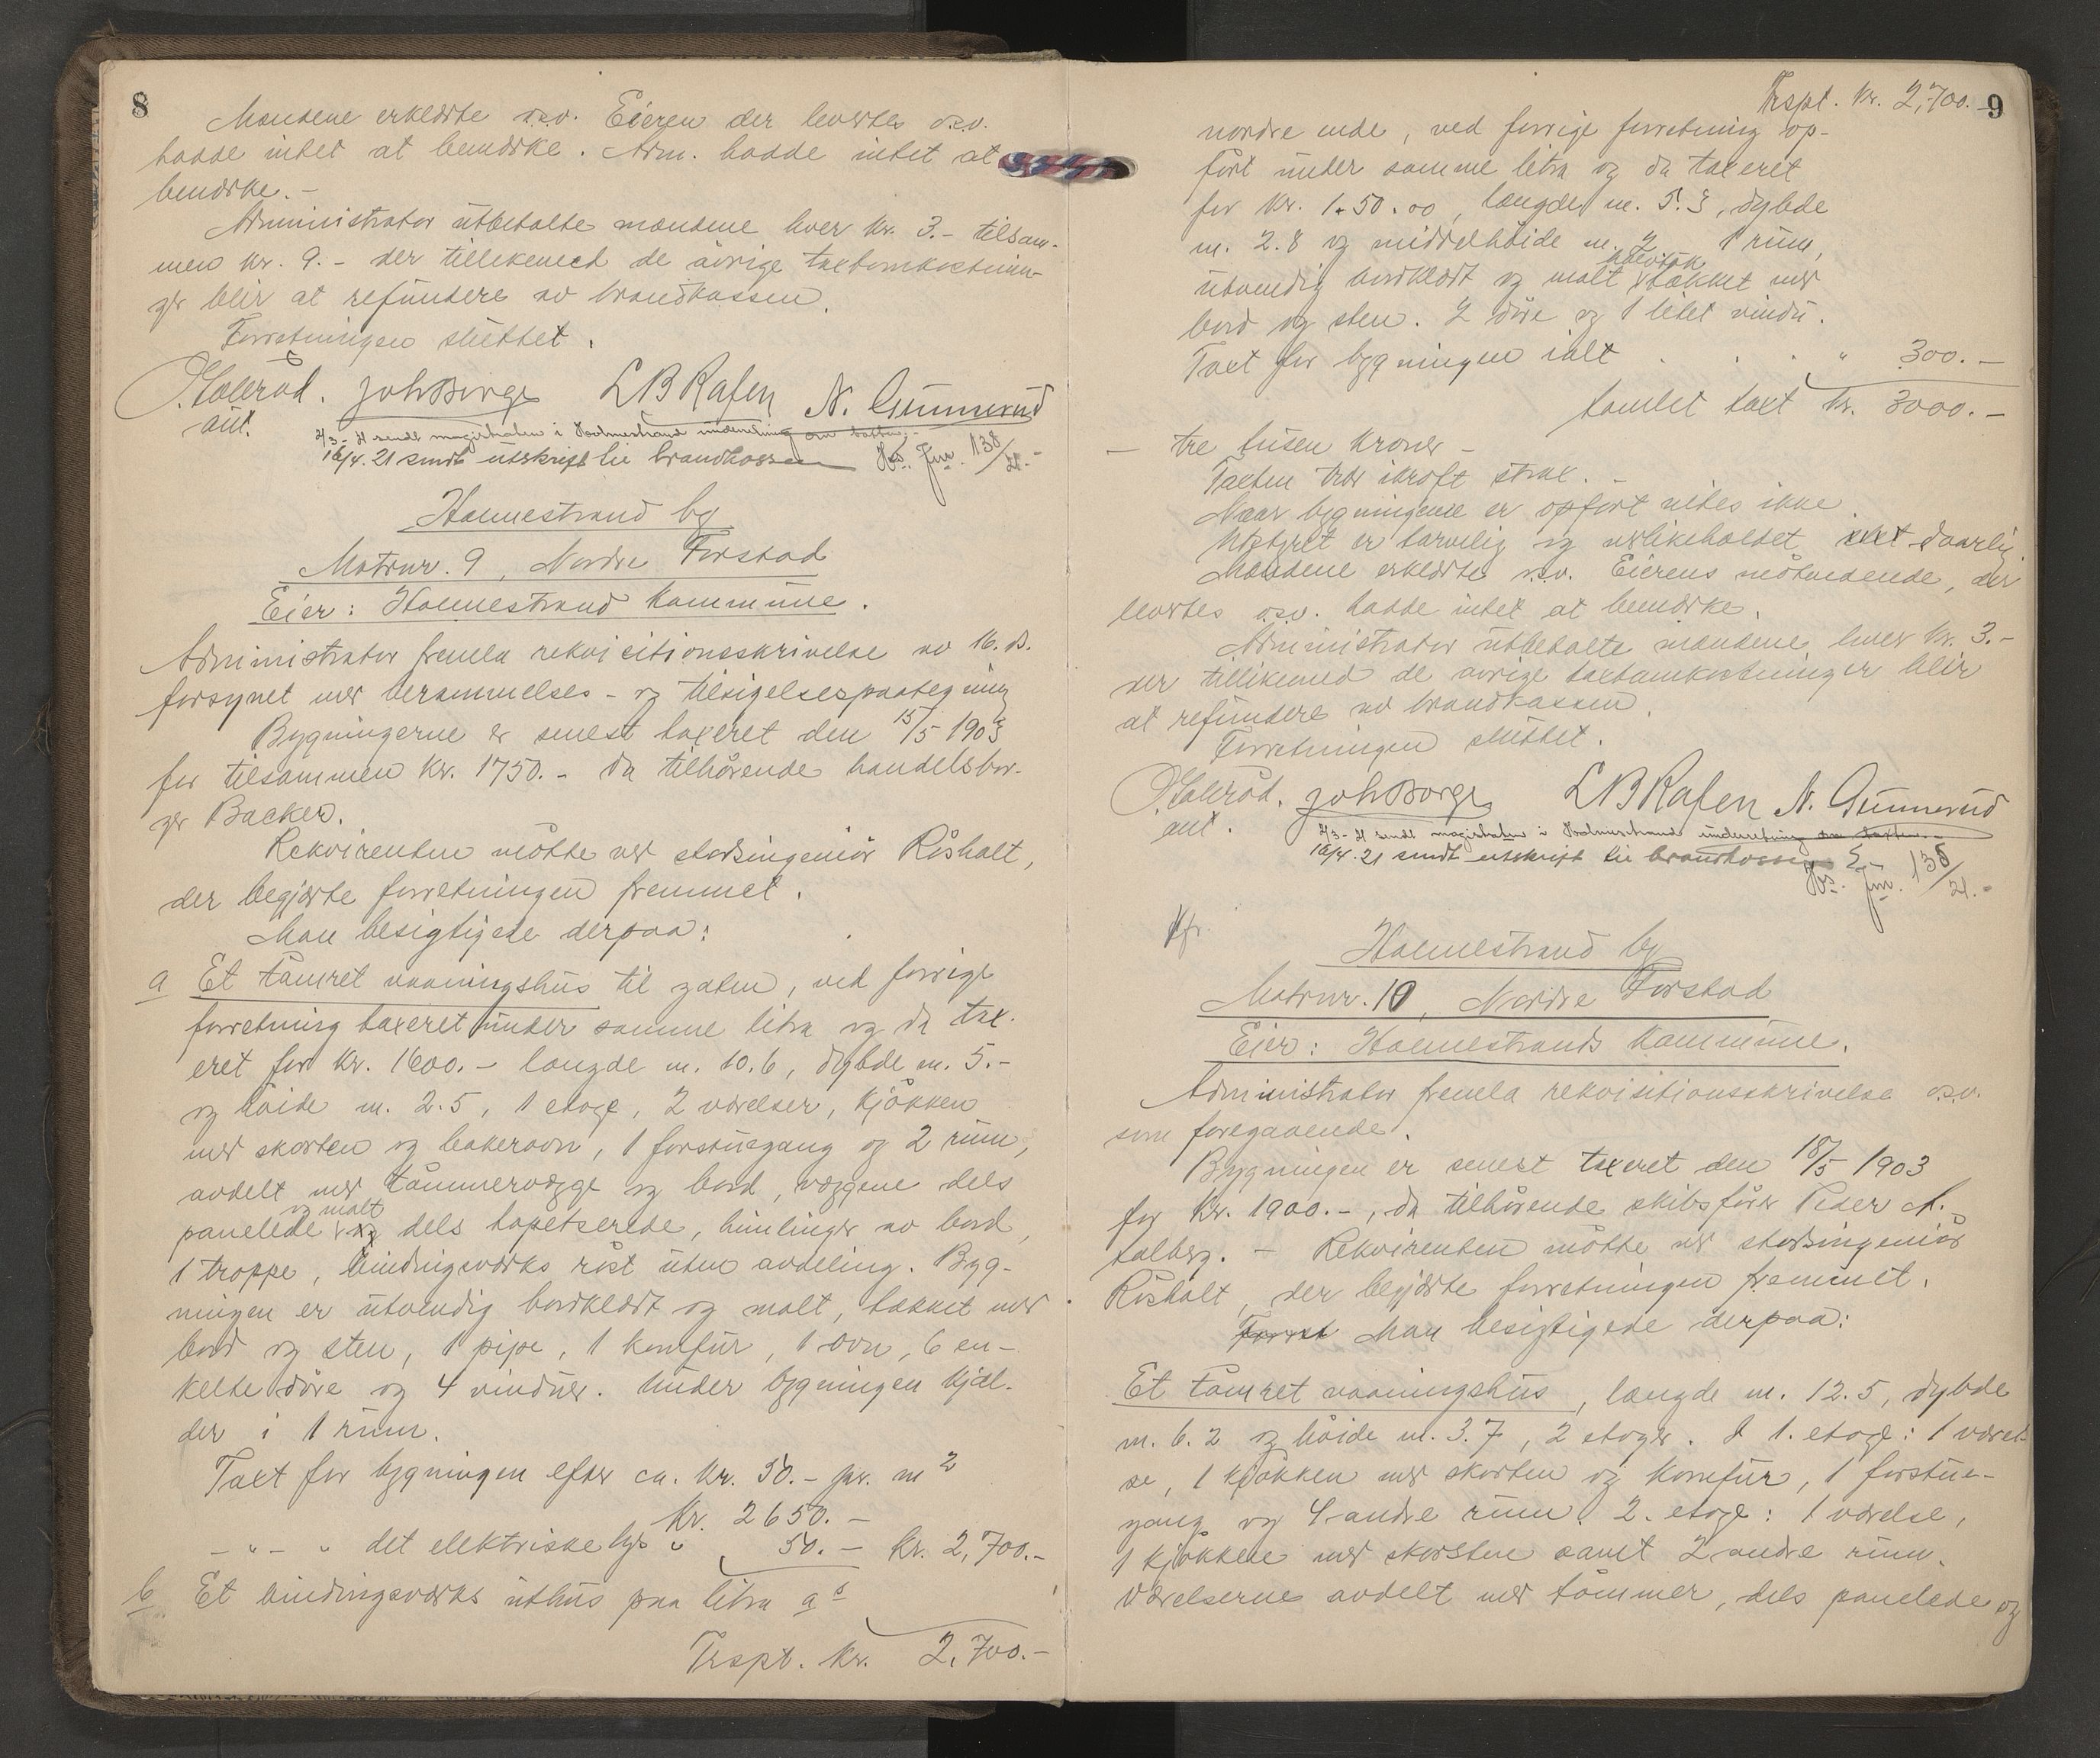 8
Mændene erklærte o.s.v. Eieren der hørtes o.s.v.
hadde intet at bemærke. Adm. hadde intet at
bemærke. -
Administrator utbetalte mændene hver kr. 3.- tilsam-
men kr. 9.- der tillikemed de øvrige taxtomkostnin-
ger blir at refundere av brandkassen.
Forretningen sluttet.
Joh Borge L B Rafen N. Gunnerud
aut.
2/3-21 sendt magistraten i Holmestrand underretning om taxten.-
16/4.21 sendt utskrift til brandkassen Jnr. 138/21.-
Holmestrand by
Matrnr. 9, Nordre Forstad
Eier: Holmestrand kommune.
Administrator fremla rekvisitionsskrivelse av 16. ds.
forsynet med berammelses- og tilsigelsespaategning
Bygningerne er senest taxeret den 15/5 1903
for tilsammen kr. 1750.- da tilhørende handelsbor-
ger Backer.
Rekvirenten møtte ved stadsingeniør Røsholt,
der begjærte forretningen fremmet.
Man besigtigede derpaa:
a Et tømret vaaningshus til gaten, ved forrige
forretning taxeret under samme litra og da tax-
eret for kr. 1600.- længde m. 10.6, dybde m. 5.-
og høide m. 2.5, 1 etage, 2 værelser, kjøkken
med skorsten og bakerovn, 1 forstuegang og 2 rum,
avdelt med tømmervægge og bord, væggene dels
og malt
panelede og dels tapetserede, himlinger av bord,
1 trappe, bindingsværks røst uten avdeling. Byg-
ningen er utvendig bordklædt og malt, tækket med
bord og sten, 1 pipe, 1 komfur, 1 ovn, 6 en-
kelte døre og 4 vinduer. Under bygningen kjæl-
der i 1 rum.
Taxt for bygningen efter ca. kr. 50.- pr. m2
Kr. 2650.-
- " - " det elektriske lys " 50.- kr. 2,700.-
b Et bindingsværks uthus paa litra a s
Trspt. kr. 2,700.-
Trspt. kr. 2,700.-
9
nordre ende, ved forrige forretning op-
ført under samme litra og da taxeret
for kr. 150.00, længde m. 5.3, dybde
m. 2.8 og middelhøide m. 2.- 1 rum,
utvendig bordklædt og malt tækket med
bord og sten. 2 døre og 1 litet vindu.
Taxt for bygningen ialt . . . " 300.-
Samlet taxt kr. 3000.-
- tre tusen kroner -
Taxten trær ikraft strax. -
Naar bygningene er opført vides ikke.
Utstyret er tarvelig og vedlikeholdet daarlig.
Mændene erklærte o.s.v. Eierens møtende, der
hørtes o.s.v. hadde intet at bemærke.
Administrator utbetalte mændene hver kr. 3.-
der tillikemed de øvrige taxtomkostninger blir
at refundere av brandkassen.
Forretningen sluttet.
Joh Borge L B Rafen N. Gunnerud
aut.
2/3-21 sendt magistraten i Holmestrand underretning om taxten.-
16/4.21 sendt utskrift til brandkassen Jnr. 138/21.-
Kfr.
Holmestrand by
Matrnr. 10, Nordre Forstad
Eier: Holmestrands kommune.
Administrator fremla rekvisitionsskrivelse o.s.v.
som foregaaende.
Bygningen er senest taxeret den 18/5 1903
for kr. 1900.-, da tilhørende skibsfører Peder A.
- Rekvirenten møtte ved stadsingeniør
Røsholt, der begjærte forretningen fremmet.
Man besigtigede derpaa:
Et tømret vaaningshus, længde m. 12.5, dybde
m. 6.2 og høide m. 3.7, 2 etager. I 1. etage: 1 værel-
se, 1 kjøkken med skorsten og komfur, 1 forstue-
gang og 4 andre rum. 2. etage: 1 værelse,
1 kjøkken med skorsten samt 2 andre rum.
Værelserne avdelt med tømmer, dels panelede og